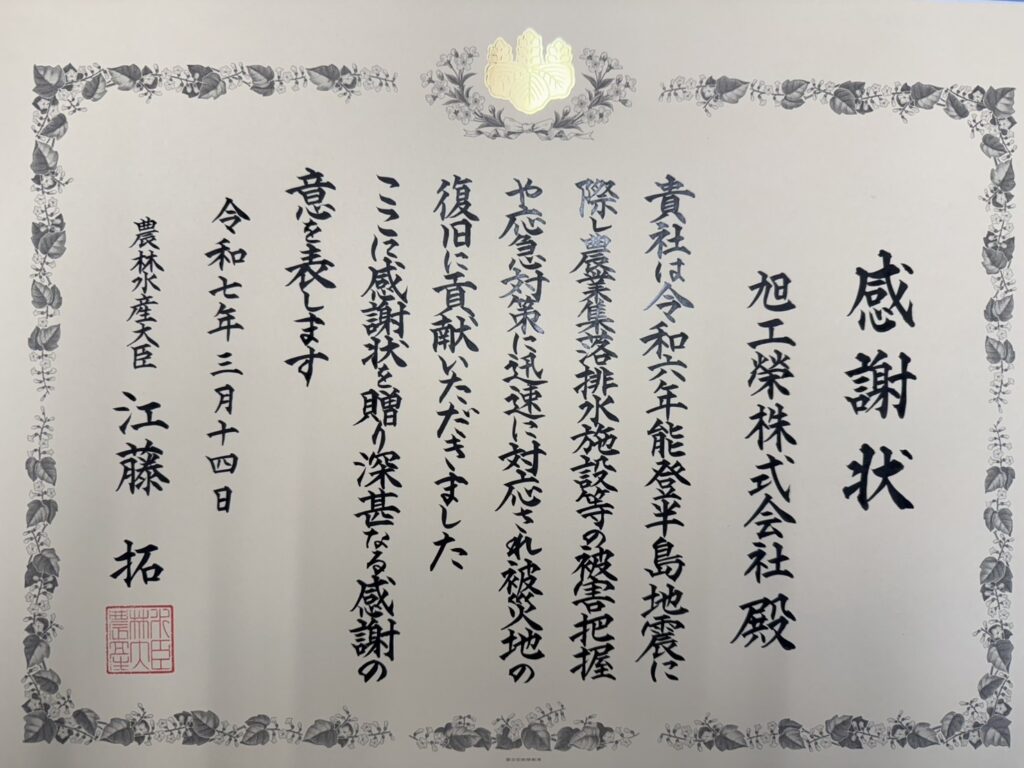 感謝状
旭工榮株式会社 殿
貴社は令和六年能登半島地震に
際し農業集落排水施設等の被害把握
や応急対策に迅速に対応され被災地の
復旧に貢献いただきました
ここに感謝状を贈り深甚なる感謝の
意を表します
令和七年三月十四日
農林水産大臣 江藤 拓